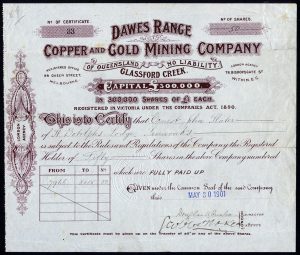 Nº OF CERTIFICATE
33
Nº OF SHARES
50
DAWES RANGE
COPPER AND GOLD MINING COMPANY
OF QUEENSLAND NO LIABILITY
GLASSFORD CREEK.
REGISTERED OFFICE
QUEEN STREET,
MELBOURNE.
LONDON AGENCY
BISHOPSGATE ST
WITHIN E.C.
CAPITAL £300,000
IN 300,000 SHARES OF £1 EACH.
REGISTERED IN VICTORIA UNDER THE COMPANIES ACT. 1890.
This is to Certify that Ernest John
of Lodge
is subject to the Rules and Regulations of the Company the Registered
Holder of Fifty Shares in the above Company numbered
FROM TO Nº
which are FULLY PAID UP
GIVEN under the Common Seal of the said Company
this MAY 30 1901
This Certificate must be given up on the Transfer of all or any of the above Shares.